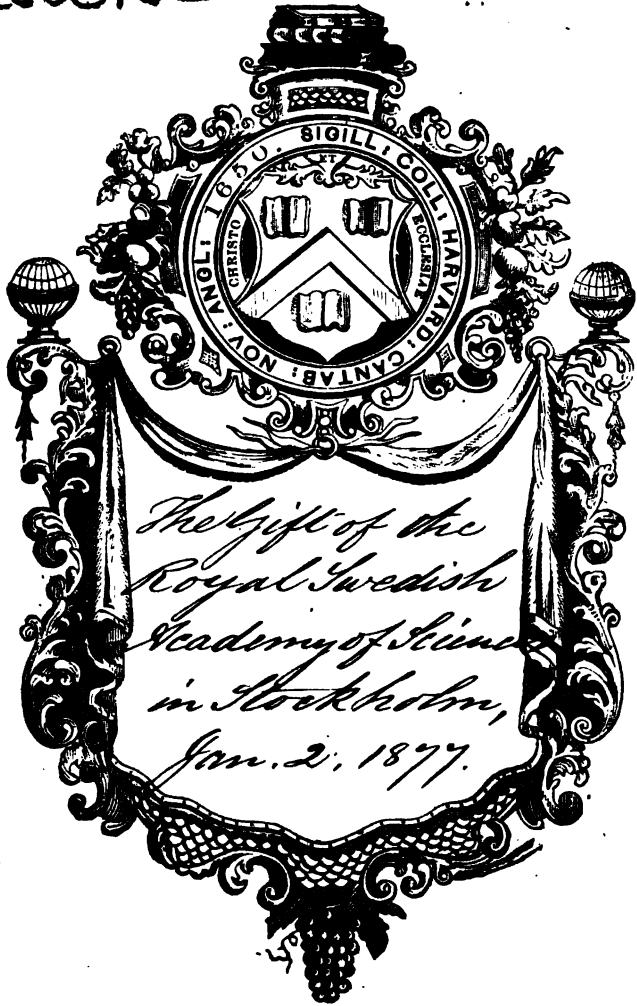 SIGILL: COLL: HARVARD: CANTAB: NOV: ANGL: 1650.
ET
CHRISTO
ECCLESIAE
The Gift of the
Royal Swedish
Academy of Science
in Stockholm,
Jan. 2, 1877.